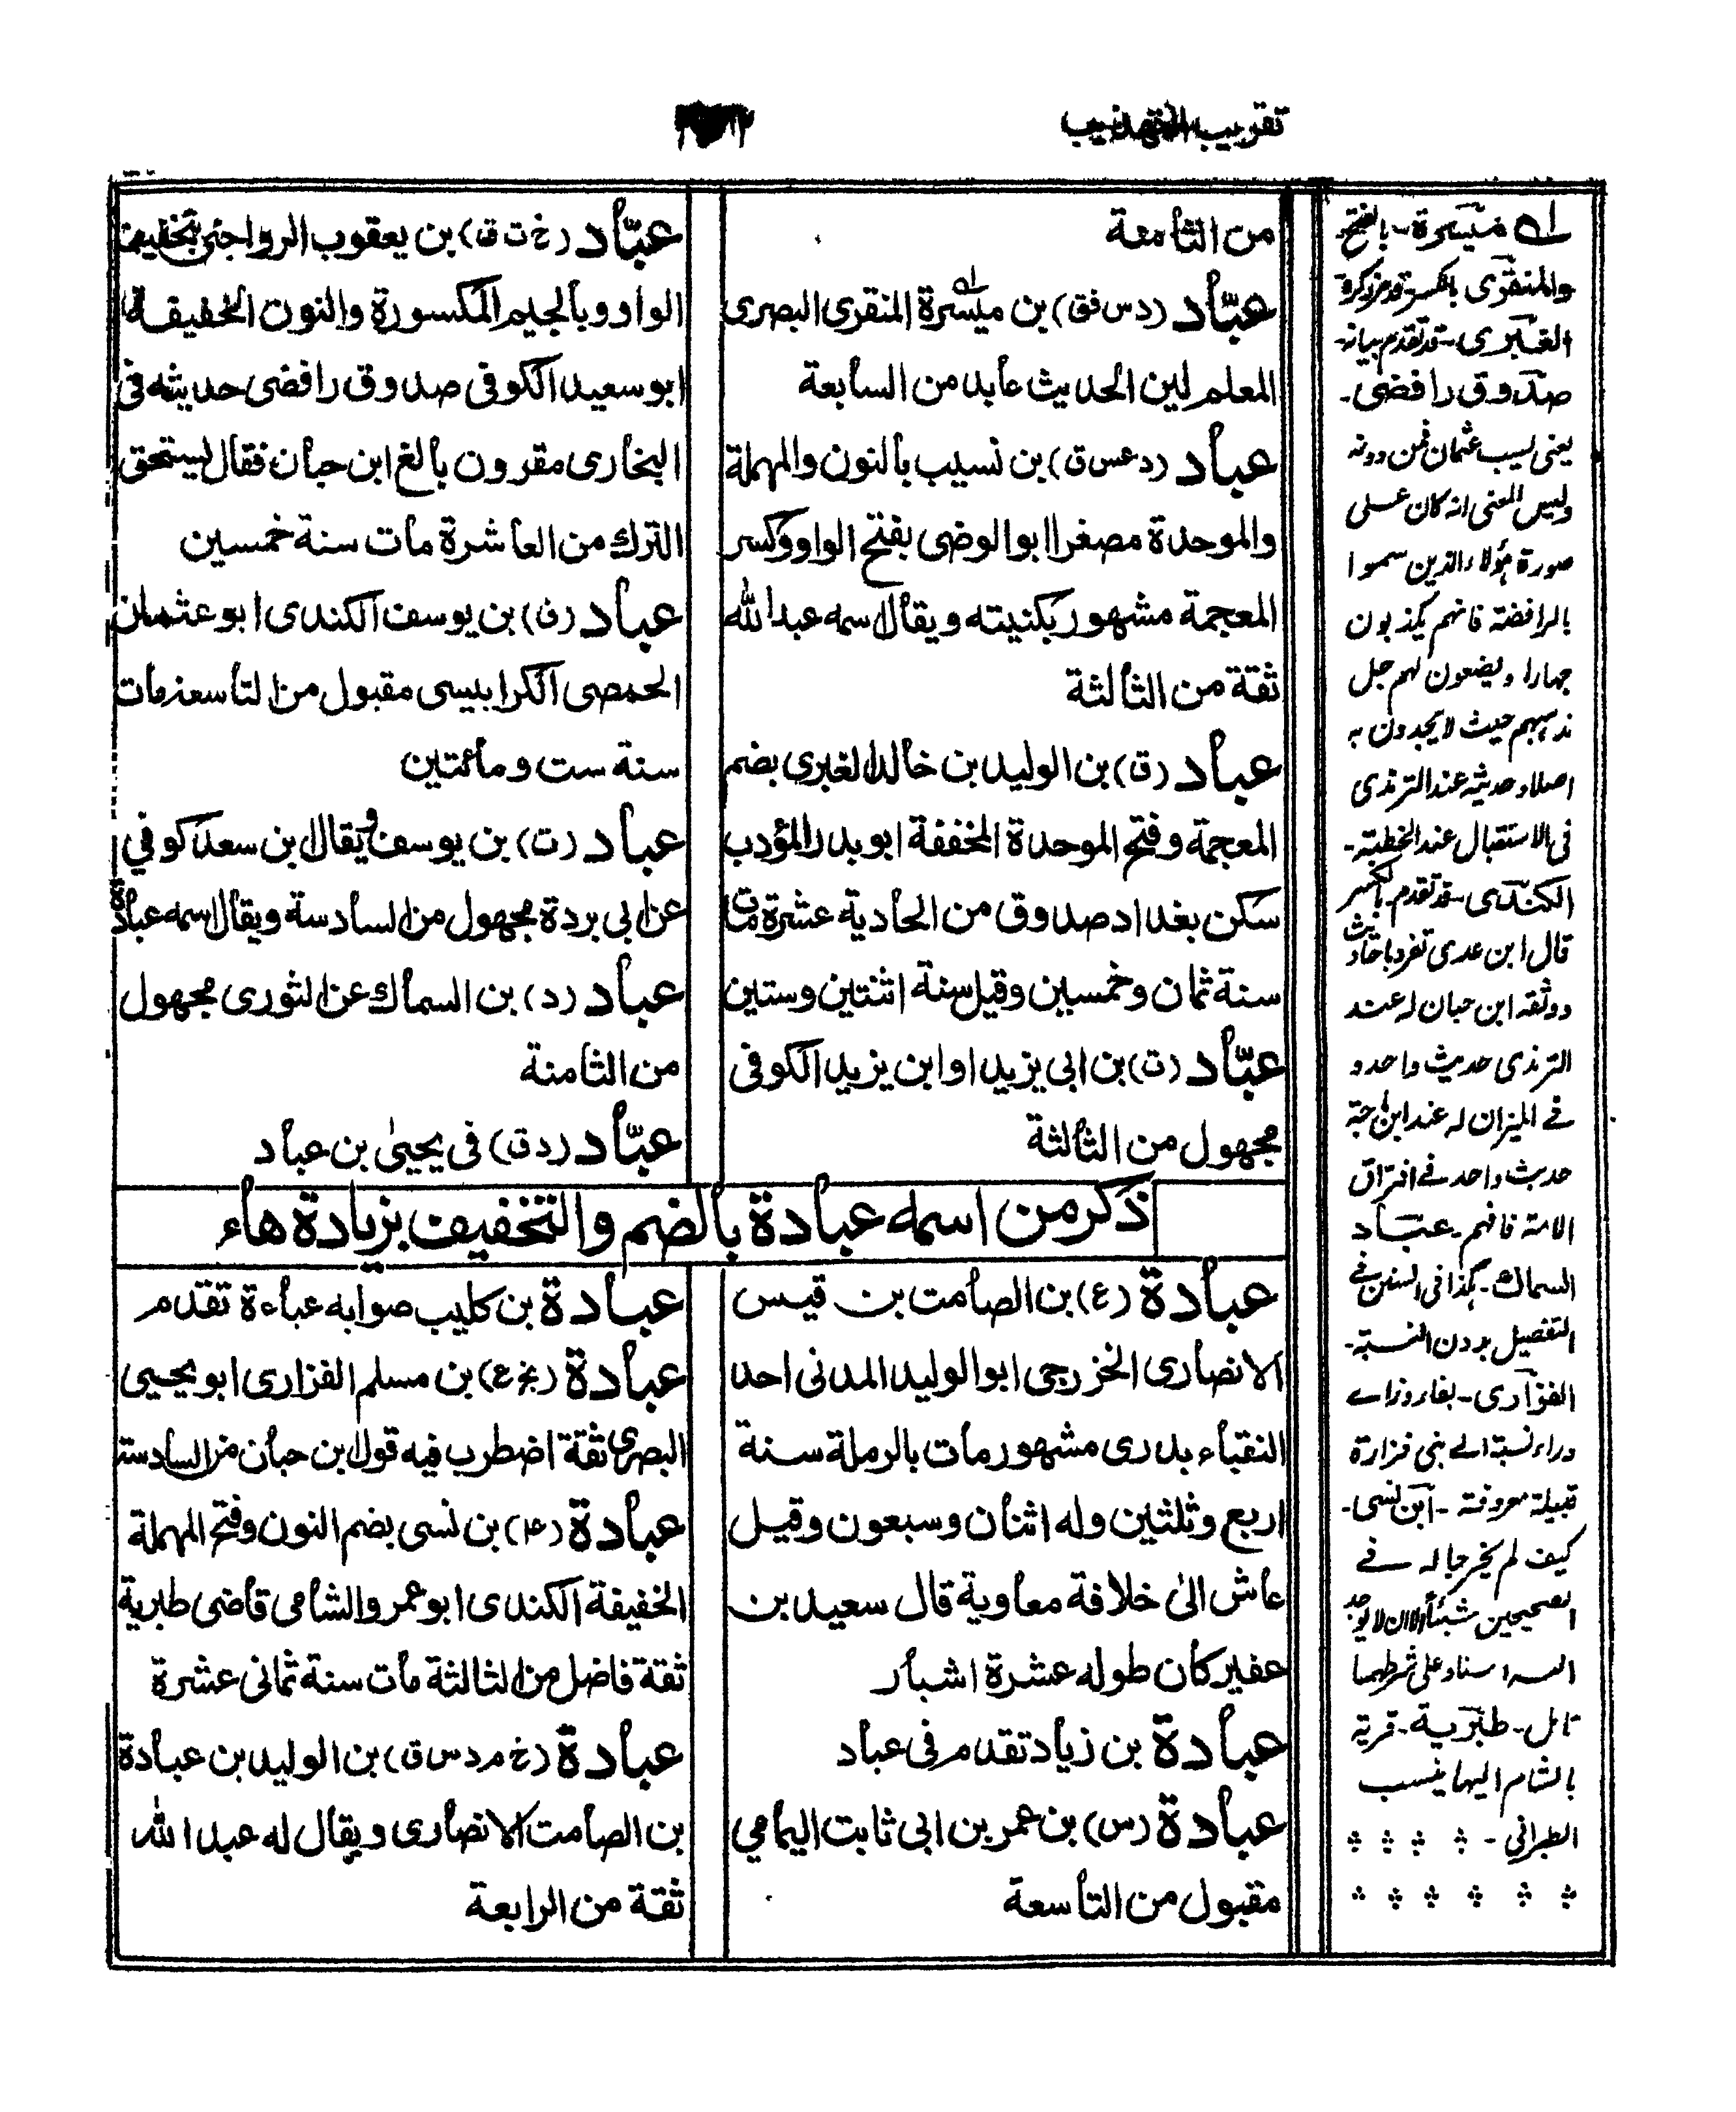 تقريب التهذيب
من الثامنة
عبّاد (د س فق) بن ميسرة المنقرى البصرى
المعلم لين الحديث عابد من السابعة
عباد (د عس ق) بن نسيب بالنون والمهملة
والموحدة مصغرا ابو الوضى بفتح الواو وكسر
المعجمة مشهور بكنيته ويقال اسمه عبد الله
ثقة من الثالثة
عباد (ق) بن الوليد بن خالد الغبرى بضم
المعجمة وفتح الموحدة المخففة ابو بدر المؤدب
سكن بغداد صدوق من الحادية عشرة مات
سنة ثمان وخمسين وقيل سنة اثنتين وستين
عبّاد (ت) بن ابى يزيد او ابن يزيد الكوفى
مجهول من الثالثة
عبّاد (خ ت ق) بن يعقوب الرواجنى بتخفيف
الواو وبالجيم المكسورة والنون الخفيفة
ابو سعيد الكوفى صدوق رافضى حديثه فى
البخارى مقرون بالغ ابن حبان فقال يستحق
الترك من العاشرة مات سنة خمسين
عباد (ق) بن يوسف الكندى ابو عثمان
الحمصى الكرابيسى مقبول من التاسعة مات
سنة ست ومائتين
عباد (ت) بن يوسف ويقال ابن سعد كوفي
عن ابى بردة مجهول من السادسة ويقال اسمه عبادة
عباد (د) بن السماك عن الثورى مجهول
من الثامنة
عبّاد (د ق) فى يحيىٰ بن عباد
ذكر من اسمه عبادة بالضم والتخفيف بزيادة هاء
عبادة (ع) بن الصامت بن قيس
الانصارى الخزرجى ابو الوليد المدنى احد
النقباء بدرى مشهور مات بالرملة سنة
اربع وثلثين وله اثنان وسبعون وقيل
عاش الىٰ خلافة معاوية قال سعيد بن
عفير كان طوله عشرة اشبار
عبادة بن زياد تقدم فى عباد
عبادة (س) بن عمر بن ابى ثابت اليمامي
مقبول من التاسعة
عبادة بن كليب صوابه عباءة تقدم
عبادة (بخ ع) بن مسلم الفزارى ابو يحيى
البصرى ثقة اضطرب فيه قول ابن حبان من السادسة
عبادة (عا) بن نسى بضم النون وفتح المهملة
الخفيفة الكندى ابو عمرو الشامى قاضى طبرية
ثقة فاضل من الثالثة مات سنة ثمانى عشرة
عبادة (خ م د س ق) بن الوليد بن عبادة
بن الصامت الانصارى ويقال له عبد الله
ثقة من الرابعة
له ميسرة - بالفتح -
والمنقرى بالكسر قد مر ذكره
الغبرى - قد تقدم بيانه -
صدوق رافضى -
يعنى يسب عثمان فمن دونه
وليس المعنى انه كان على
صورة هؤلاء الذين سموا
بالرافضة فانهم يكذبون
جهارا ويضعون لهم جل
مذهبهم حيث لا يجدون به
اصلا وحديثه عند الترمذى
فى الاستقبال عند الخطبة -
الكندى - قد تقدم بالكسر
قال ابن عدى تفرد باحاديث
ووثقه ابن حبان له عند
الترمذى حديث واحد و
فے الميزان له عند ابن ماجة
حديث واحد فے افتراق
الامة فافهم - عباد
السماك - كذا فى السنن فے
التفصيل بدون النسبة -
الفزارى - بفاء وزاے
وراء نسبة الے بنى فزارة
قبيلة معروفة - ابن نسى -
كيف لم يخرجا له فے
الصحيحين شيئا الا ان لا يوجد
اليه اسناد على شرطهما
تامل - طبرية - قرية
بالشام اليها ينسب
الطبرانى -